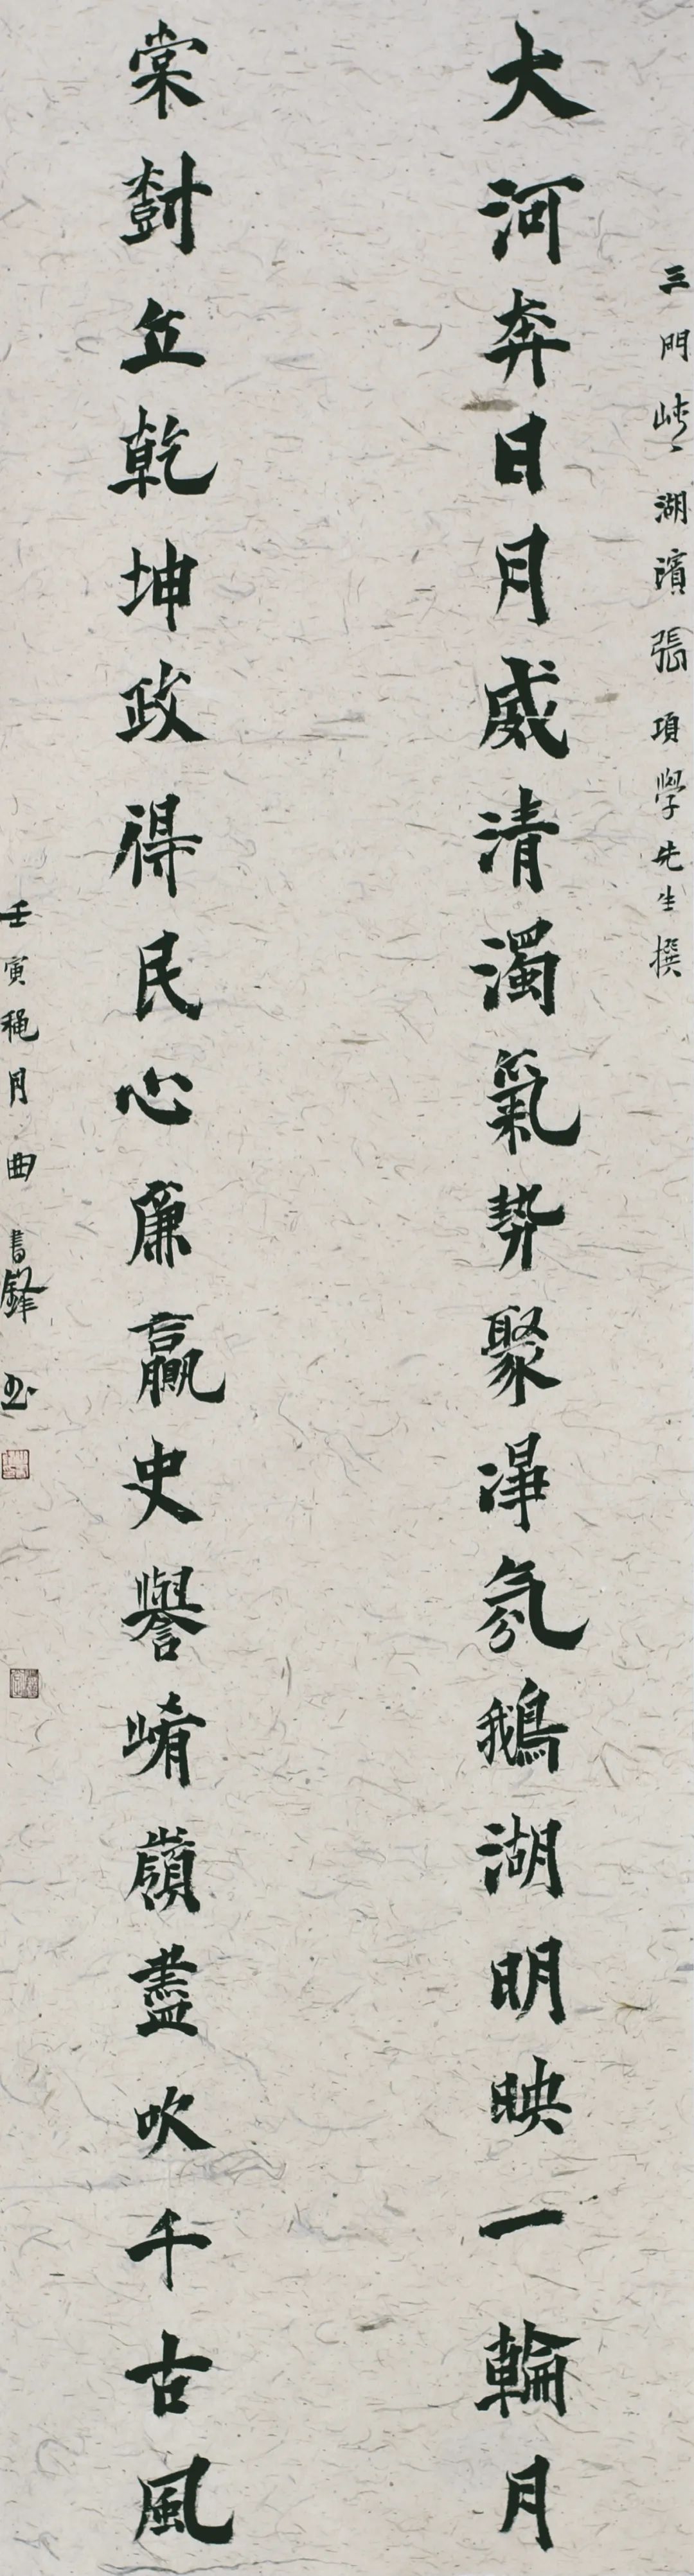 三門峽湖濱張項學先生撰
大河奔日月威清濁氣勢聚渾氛鵝湖明映一輪月
棠樹立乾坤政得民心廉贏史譽崤嶺盡吹千古風
壬寅穐月曲書鋒書